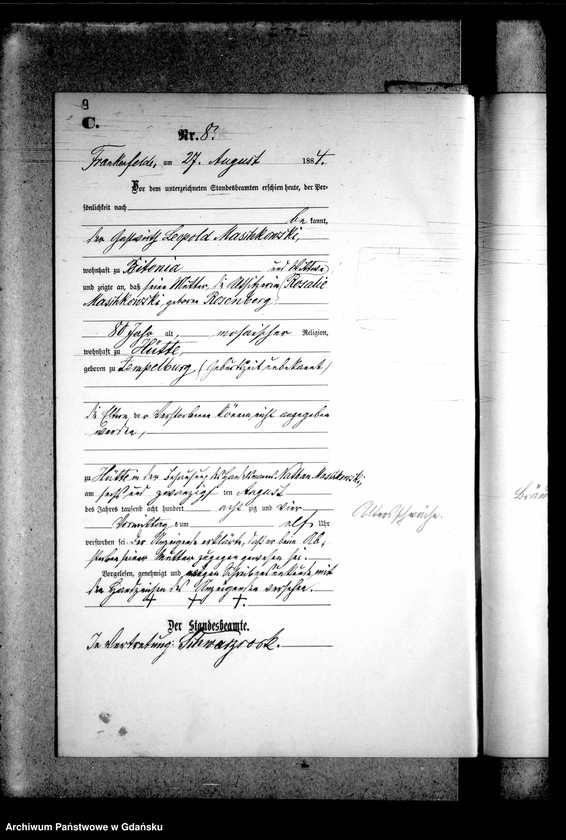 9
C.
Nr. 8.
Frankenfelde, am 27. August 1884.
Vor dem unterzeichneten Standesbeamten erschien heute, der Per-
sönlichkeit nach
be kannt,
der Gastwirth Leopold Maschkowski,
wohnhaft zu Bitonia
und zeigte an, daß seine Mutter, die Rosalie
Maschkowski geboren Rosenberg,
und Wittwe
80 Jahr alt, mosaischer Religion,
wohnhaft zu Hütte,
geboren zu Tempelburg, (Geburtszeit unbekannt)
die Eltern der Verstorbenen können nicht angegeben
werden,
zu Hütte in der Behausung des Handelsmanns Nathan Maschkowski,
am sechs und zwanzigsten August
des Jahres tausend acht hundert achtzig und vier
Vormittags um elf Uhr
verstorben sei. Der Anzeigende erklärte, daß er beim Ab-
sterben seiner Mutter zugegen gewesen sei.
Vorgelesen, genehmigt und wegen Schreibensunkunde mit
den Handzeichen des Anzeigenden versehen.
† † †.
Der Standesbeamte.
In Vertretung:
Altersschwäche.
Archiwum Państwowe w Gdańsku